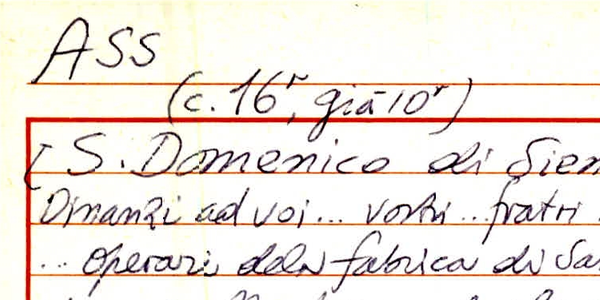 ASS
(c. 16r, già 10r)
[S. Domenico di Sien
Dinanzi ad voi... vostri... fratri
... operari dela fabrica di Sa